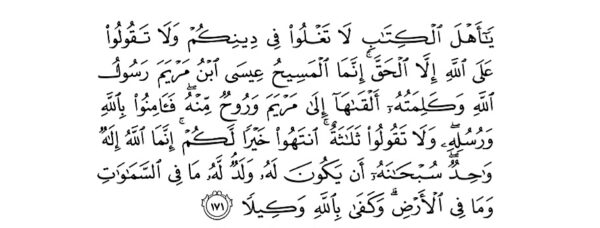 يَـٰٓأَهۡلَ ٱلۡكِتَـٰبِ لَا تَغۡلُوا۟ فِى دِينِكُمۡ وَلَا تَقُولُوا۟
عَلَى ٱللَّهِ إِلَّا ٱلۡحَقَّۚ إِنَّمَا ٱلۡمَسِيحُ عِيسَى ٱبۡنُ مَرۡيَمَ رَسُولُ
ٱللَّهِ وَكَلِمَتُهُۥٓ أَلۡقَىٰهَآ إِلَىٰ مَرۡيَمَ وَرُوحٌ مِّنۡهُۖ فَـَٔامِنُوا۟ بِٱللَّهِ
وَرُسُلِهِۦۖ وَلَا تَقُولُوا۟ ثَلَـٰثَةٌۚ ٱنتَهُوا۟ خَيۡرًا لَّكُمۡۚ إِنَّمَا ٱللَّهُ إِلَـٰهٌ
وَٰحِدٌۖ سُبۡحَـٰنَهُۥٓ أَن يَكُونَ لَهُۥ وَلَدٌۘ لَّهُۥ مَا فِى ٱلسَّمَـٰوَٰتِ
وَمَا فِى ٱلۡأَرۡضِۗ وَكَفَىٰ بِٱللَّهِ وَكِيلًا ١٧١